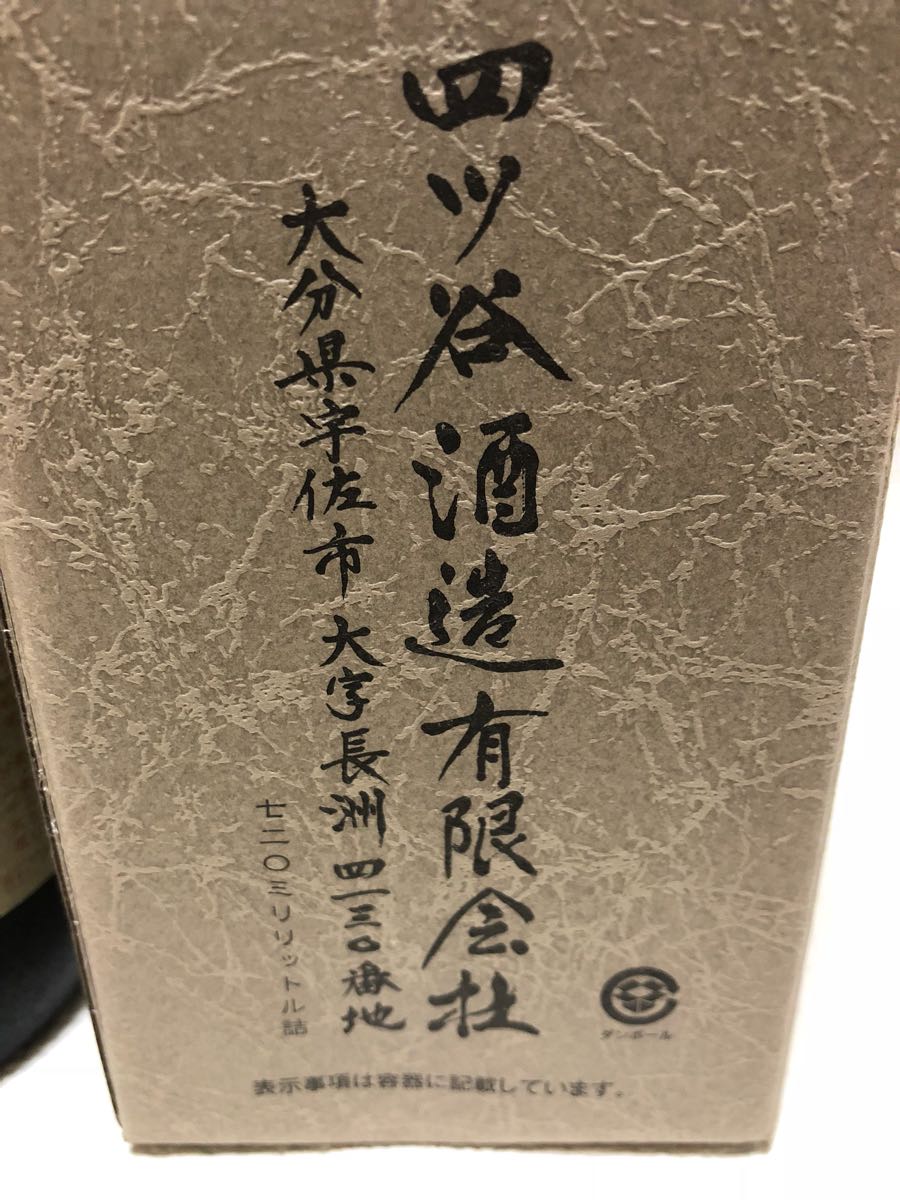 四ッ谷酒造有限会社
大分県宇佐市大字長洲四一三〇番地
七二〇ミリリットル詰
ダンボール
表示事項は容器に記載しています。